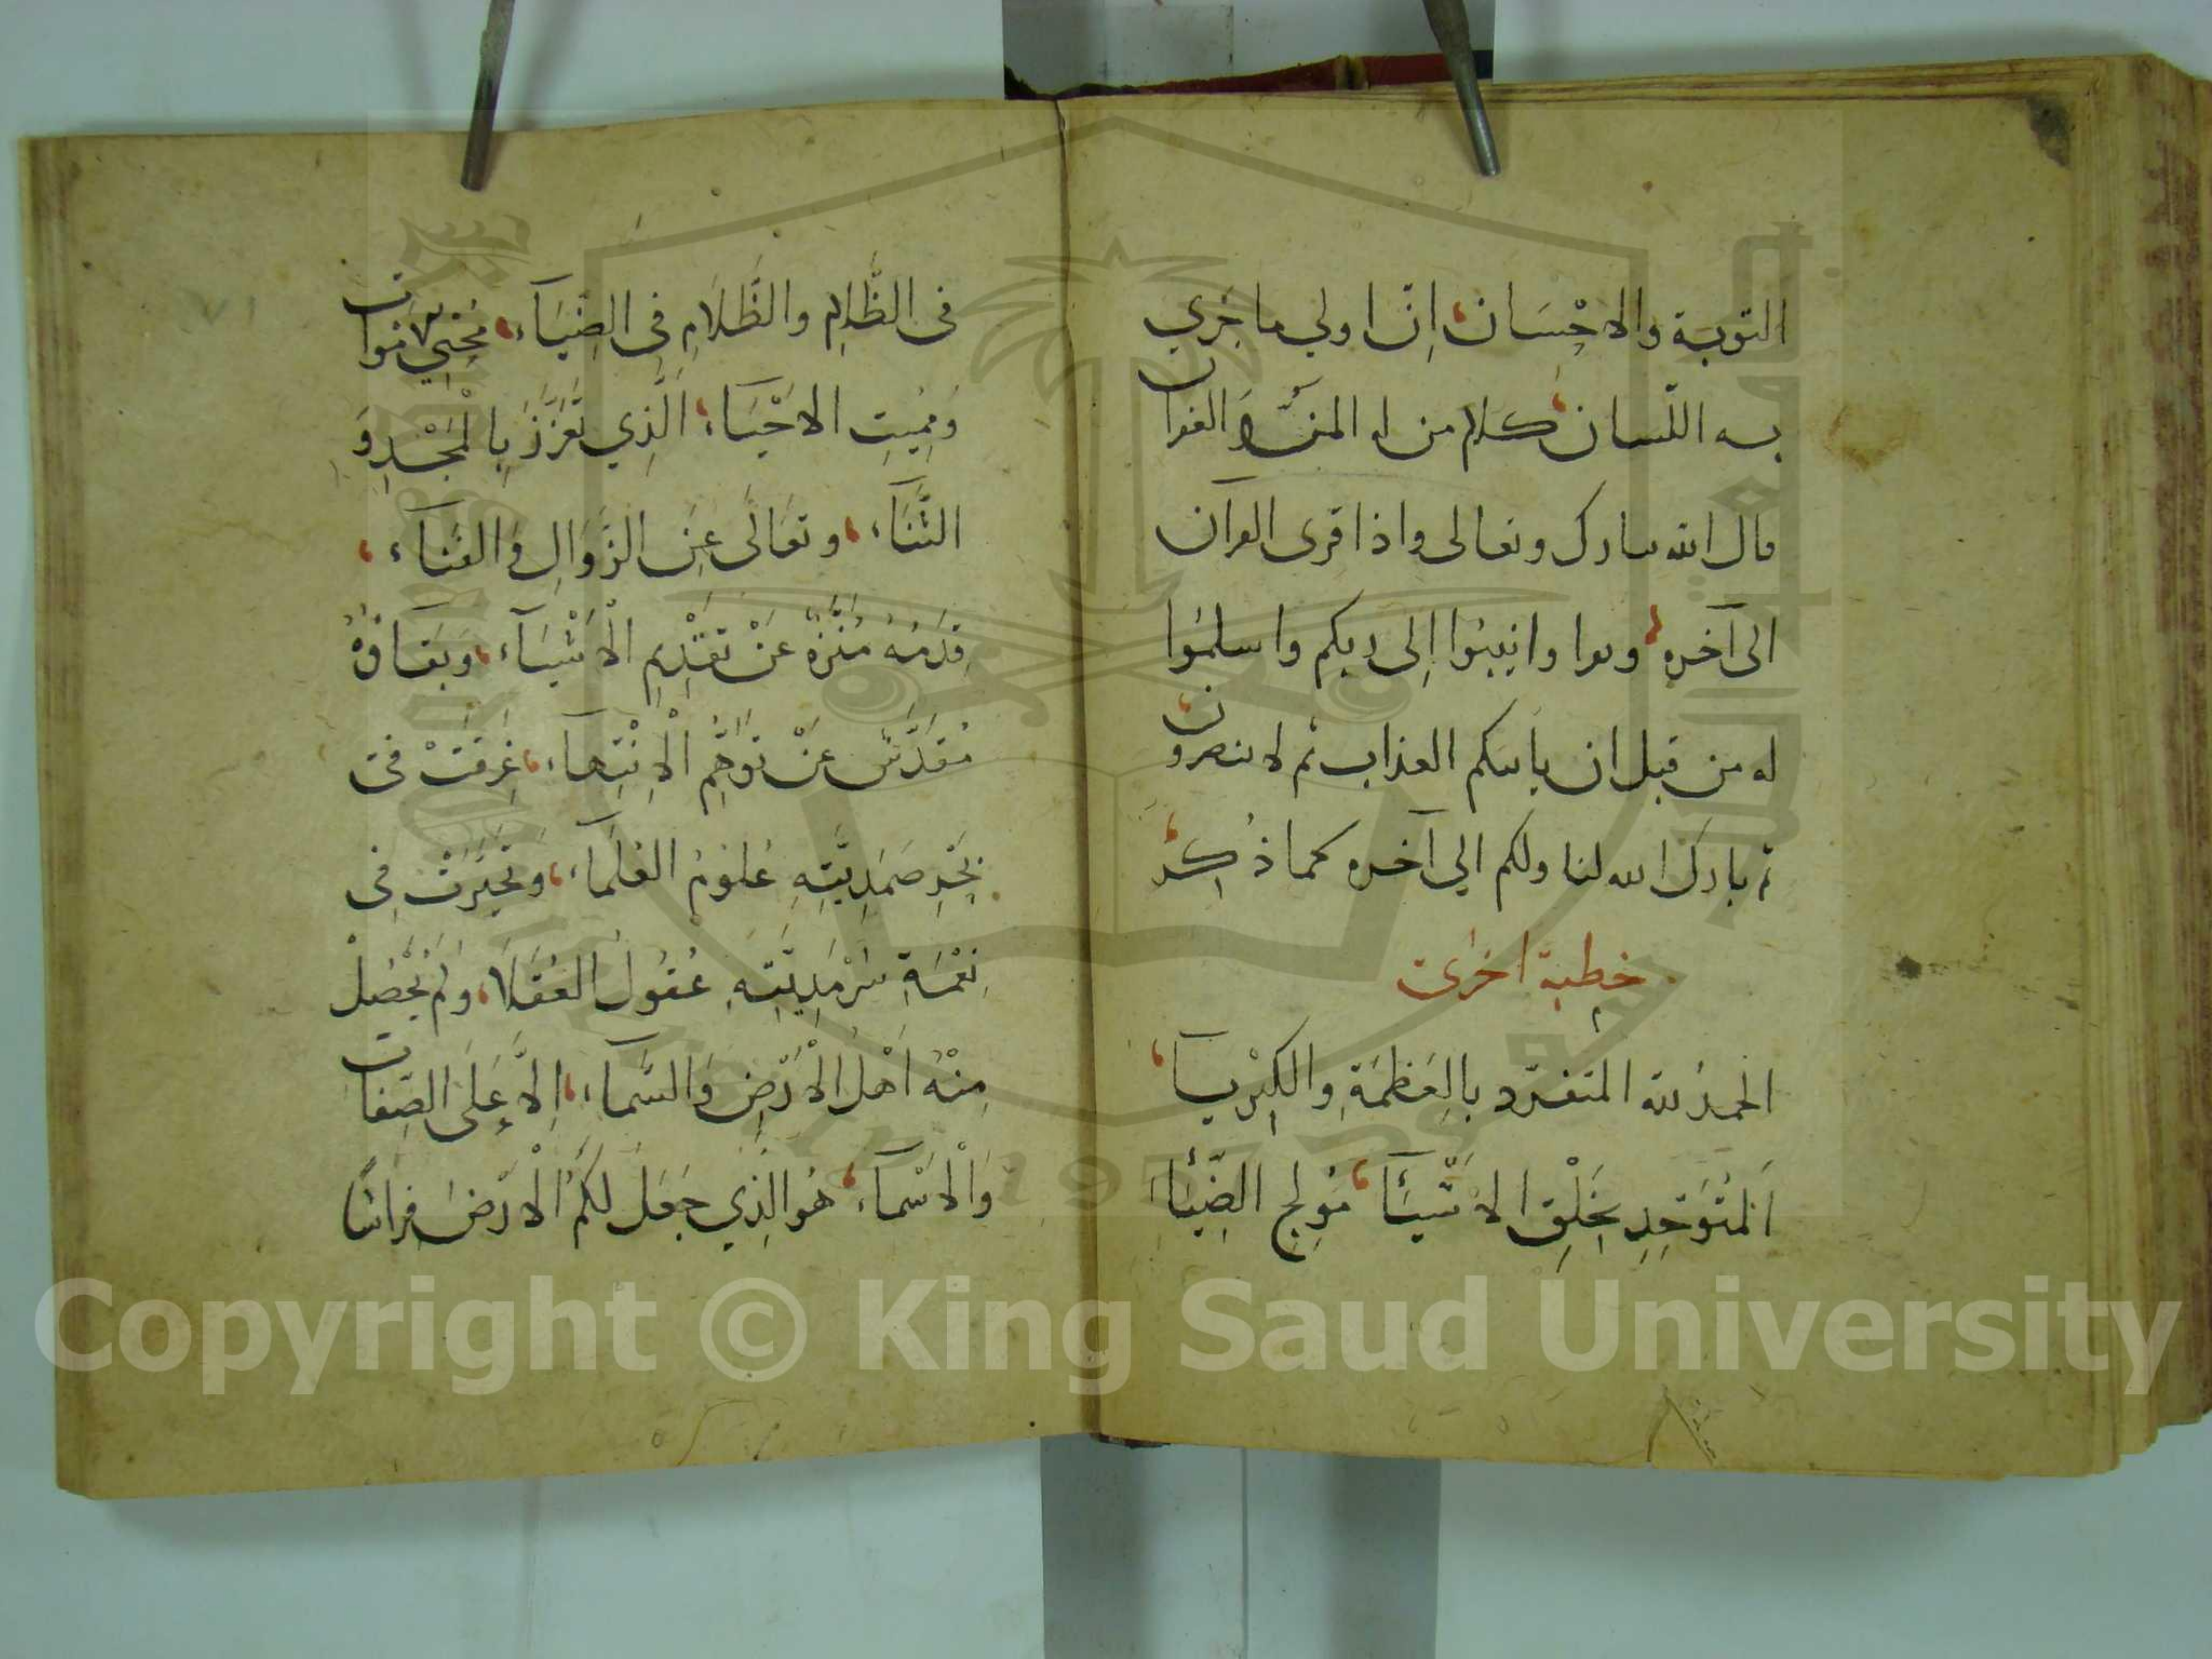 التوبة والاحسان ان اولي ما جري
به اللسان كلام من له المن والغفران
قال الله تبارك وتعالى واذا قرى القرآن
الى آخره وقرا وانيبوا الى ربكم واسلموا
له من قبل ان ياتيكم العذاب ثم لا تنصرون
ثم بارك الله لنا ولكم الي آخره كما ذكر
خطبة اخرى
الحمدُ لله المتفرّد بِالعَظمَةِ والكِبْرِيآ
اَلمُتَوَحِدِ بِخَلْقِ الاشيَآ مُولِجِ الضِّيَاءِ
فى الظَّلامِ والظَّلَامِ فِى الضِّيَآءِ مُحْيِي الامَوَات
وَمُمِيتِ الاحْيَاءِ الَّذِي تَعَزَّزَ بِالْمَجْدِ وَ
الثَّنَآءِ وتَعَالَى عَنِ الزَّوَالِ وَالفَنَآءِ
قِدَمُهُ مُنَزَّهٌ عَنْ تَقَدُّمِ الْاَشْيَآءِ وَبَقَاؤُهُ
مُقَدَّسٌ عَنْ تَوَهُّمِ الْاِنْتِهَآءِ غَرِقَتْ فى
بَحْرِ صَمَدِيَّتِهِ عُلُومُ العُلَمَآءِ وَتَحَيَّرَتْ فِى
سَرْمَدِيَّتِهِ عُقُولُ العُقَلَا وَلَمْ يَحْصُلْ
مِنْهُ اَهْلُ الْاَرْضِ وَالسَّمَآءِ اِلَّا عَلَى الصِّفَات
وَالْاَسْمَآءِ هُوَ الَّذِي جَعَلَ لَكُمُ الْاَرْضَ فِرَاشًا
Copyright © King Saud University